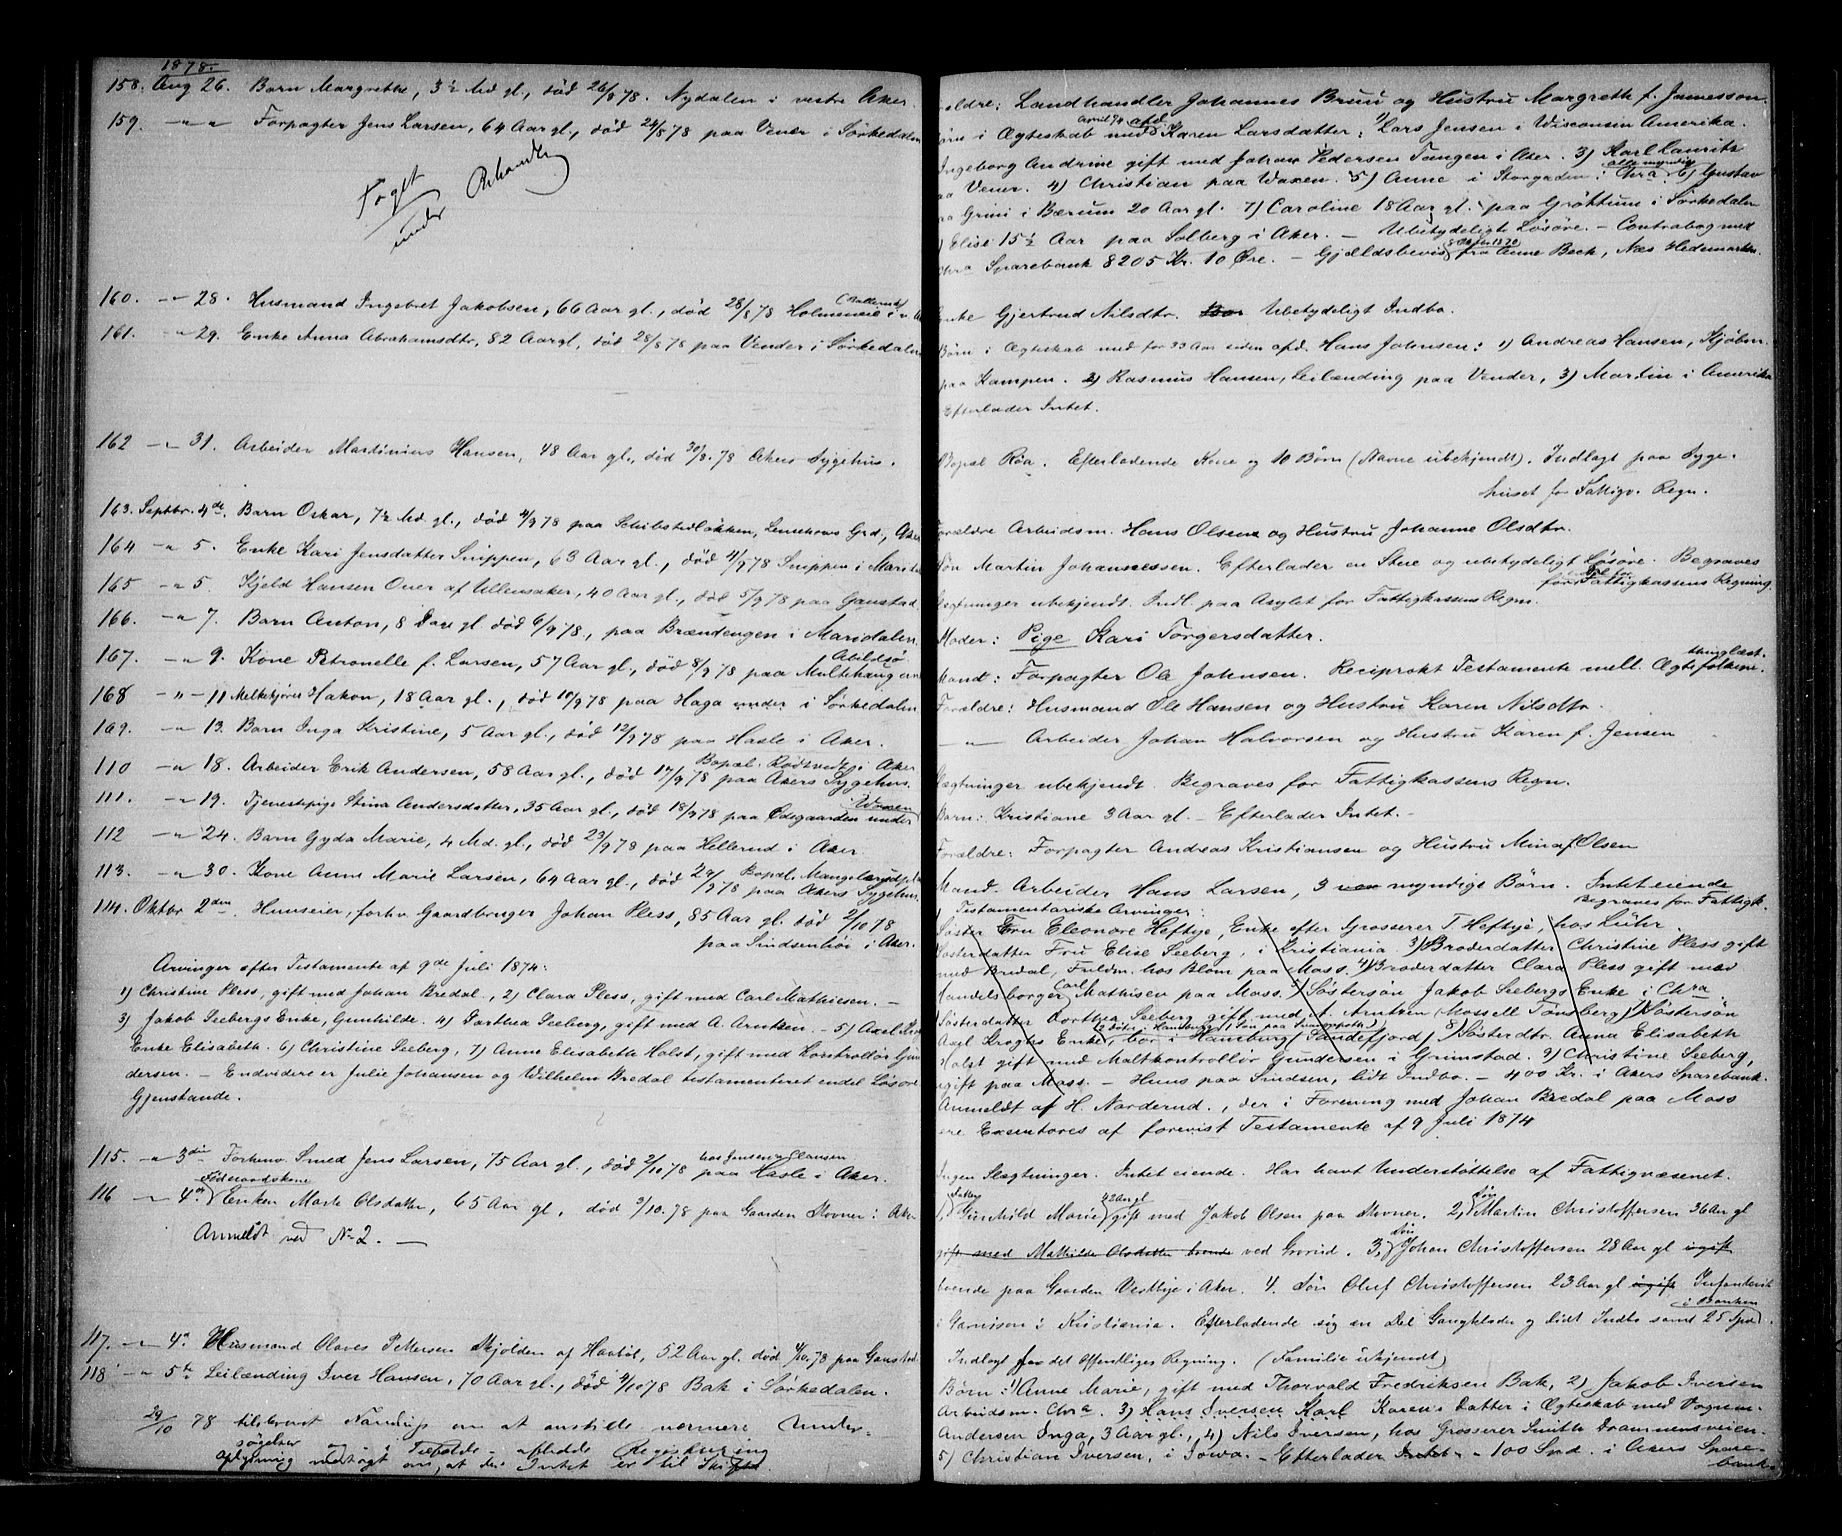 1878.
158. Aug 26. Barn Margrethe, 3½ Md. gl., död 26/8 78. Nydalen i vestre Aker.
159. -"- " Forpagter Jens Larsen, 64 Aar gl., död 24/8 78 paa Vener i Sörkedalen
Foget
under Behandl.
160. -"- 28. Husmand Ingebret Jakobsen, 66 Aar gl., död 28/8 78 Holmeneie i v. A
(Ballerud)
161. -"- 29. Enke Anna Abrahamsdtr, 82 Aar gl, död 28/8 78 paa Vender i Sørkedalen
162 -"- 31. Arbeider Martinius Hansen, 48 Aar gl., död 30/8. 78 Akers Sygehus.
163. Septbr. 4de. Barn Oskar, 7½ Md. gl., död 4/9 78 paa Schibstedløkken, Grd, Aker
164 -"- 5. Enke Kari Jensdatter Snippen, 63 Aar gl., död 4/9 78 Snippen i Marid
165 -"- 5. Kjeld Hansen Oner af Ullensaker, 40 Aar gl., död 5/9 78 paa Gaustad.
166. -"- 7. Barn Anton, 8 Dage gl död 6/9 78, paa Brændengen i Maridalen.
167. -"- 9. Kone Petronelle f. Larsen, 57 Aar gl., död 8/9 78 paa Multehaug
Abildsö
168 " - 11 Melkekjörer Hakon, 18 Aar gl., död 10/9 78 paa Haga under i Sörkedalen
169. -"- 13. Barn Inga Kristine, 5 Aar gl., död 12/9 78 paa Hasle i Aker.
110 -"- 18. Arbeider Erik Andersen, 58 Aar gl., död 17/9 78 paa Akers Sygehus.
Bopæl. Rödtvedt i Aker
111. -"- 19. Tjenestepige Stina Andersdatter, 35 Aar gl., död 18/9 78 paa Ödegaarden under
Waxen
112 -"- 24. Barn Gyda Marie, 4 Md. gl., död 23/9 78 paa Hellerud i Aker
113. -"- 30. Kone Anne Marie Larsen, 64 Aar gl., död 29/9 78 paa Akers Sygehus.
Bopæl. Manglerud
114. Oktbr 2den. Huuseier, forhv. Gaardbruger Johan Pless, 85 Aar gl. död 2/10 78
paa Sindsenhöi i Aker.
Arvinger efter Testamente af 9de Juli 1874:
1) Christine Pless, gift med Johan Bredal., 2) Clara Pless, gift med Carl Mathiesen. -
3) Jakob Seebergs Enke, Gunhilde. 4) Dorthea Seeberg, gift med A. Arntzen. - 5) Axel Krog
Enke Elisabeth. 6) Christine Seeberg, 7) Anne Elisabeth Holst, gift med Kontrollör Gun
dersen. - Endvidere er Julie Johansen og Wilhelm Bredal testamenteret endel Lösöre
Gjenstande.
115. -"- 3die Forhenv. Smed Jens Larsen, 75 Aar gl., död 2/10 78 paa Hasle i Aker.
hos Jensen & Clausen
116 -"- 4de Enken Marte Olsdatter, 65 Aar gl, död 3/10. 78 paa Gaarden Stovner i Aker
Föderaadskone
Anmeldt ved No 2. -
117. -"- 4de Husmand Olaves Pettersen Skjolden af Haaböl, 52 Aar gl. död 4/10. 78 paa Gaustad.
118 -"- 5te Leilænding Iver Hansen, 70 Aar gl., död 4/10 78 Bak i Sörkedalen.
29/10 78 tilskrevet Nærstrup om at anstille nærmere Under-
søgelser og i Tilfælde afholde Registrering
oplysning modtagt om, at der Intet er til Skifte.
Forældre: Landhandler Johannes Bruu og Hustru Margreth f. Jamesson.
Börn i Ægteskab med Karen Larsdatter: 1) Lars Jensen i Wisconsin Amerika.
april 74 afd.
Ingeborg Andrine gift med Johan Pedersen Tangen i Aker. 3) Karl Lauritz
paa Vener. 4) Christian paa Waxen. 5) Anne i Storgaden i Chra. 6) Gustav
alle myndig
paa Grini i Bærum 20 Aar gl. 7) Caroline 18 Aar gl. paa Gröttum i Sörkedalen
8) Elise 15½ Aar paa Solberg i Aker. - Ubetydeligt Lösöre. - Contrabog med
Chra Sparebank 8205 Kr. 10 Øre. - Gjældsbevis fra Anne Beck, Næs Hedemarken.
8 Oktbr. 1870
Enke Gjertrud Nilsdtr. Ubetydeligt Indbo.
Børn i Ægteskab med for 33 Aar siden afd. Hans Johnsen: 1) Andreas Hansen, Kjöbm.
paa Kampen. 2) Rasmus Hansen, Leilænding paa Vender, 3) Martin i Amerika
Efterlader Intet.
Bopæl Röa. Efterladende Kone og 10 Börn (Navne ubekjendt). Indlagt paa Syge-
huset for Fattigv. Regn.
Forældre Arbeidsm. Hans Olsen og Hustru Johanne Olsdtr.
Sön Martin Johannessen. Efterlader en Stue og ubetydeligt Lösöre. Begraves
for Fattigkassens Regning.
Slægtninger ubekjendt. Indl. paa Asylet for Fattigkassens Regn.
Moder: Pige Kari Torgersdatter.
Mand: Forpagter Ole Johnsen. Reciprokt Testamente mell. Ægtefolkene.
thinglæst
Forældre: Husmand Ole Hansen og Hustru Karen Nilsdtr.
-"- Arbeider Johan Halvorsen og Hustru Karen f. Jensen
Slægtninger ubekjendt. Begraves for Fattigkassens Regn.
Barn: Kristiane 3 Aar gl. - Efterlader Intet. -
Forældre: Forpagter Andreas Kristiansen og Hustru Mina f. Olsen
Mand. Arbeider Hans Larsen, 3 myndige Börn. Intet eiende
Begraves for Fattigk.
Testamentariske Arvinger:
Söster Fru Eleonore Heftye, Enke efter Grosserer T Heftye, hos Lühr.
Sösterdatter Fru Elise Seeberg, i Kristiania 3) Broderdatter Christine Pless gift
med Bredal, Fuldm. hos Blom paa Moss. 4) Broderdatter Clara Pless gift med
Handelsborger Carl Mathisen paa Moss. 5) Söstersön Jakob Seebergs Enke i Chra
Sösterdatter Dorthea Seeberg gift med A. Arntzen (Mossell Tönsberg) Söstersön
Axel Kroghs Enke, bor i Hamburg / Sandefjord / 8) Sösterdtr. Anna Elisabeth
Holst gift med Maltkontrollör Gundersen i Grimstad. 9) Christine Seeberg,
ugift paa Moss. - Huus paa Sindsen, lidt Indbo. - 400 Kr. i Akers Sparebank.
Anmeldt af H. Norderud., der i Forening med Johan Bredal paa Moss
ere Executores af forevist Testamente af 9 Juli 1874
Ingen Slægtninger. Intet eiende. Har havt Understöttelse af Fattigvæsenet.
1, Gunhild Marie gift med Jakob Olsen paa Stovner. 2, Martin Christoffersen 36 Aar gl
Datter 42 Aar gl Sön
gift med Mathilde Olsdatter boende ved Grorud. 3, Johan Christoffersen 28 Aar gl ugift
Sön
boende paa Gaarden Vestbye i Aker. 4. Sön Oluf Christoffersen 23 Aar gl ugift Infanterist
i Garnison i Kristiania. Efterladende sig en Del Gangklæder og lidt Indbo samt 25 Spd
i Banken
Indlagt for det offentliges Regning. (Familie ukjendt)
Børn: 1) Anne Marie, gift med Thorvald Fredriksen Bak, 2) Jakob Iversen
Arbeidsm. Chra. 3) Hans Iversen Karl Karen's Datter i Ægteskab med Vognm.
Andersen Inga, 3 Aar gl., 4) Nils Iversen, hos Grosserer Smith Drammensveien
5) Christian Iversen, i Iowa. - Efterlader Intet - 100 Spd. i Akers Spare-
bank.